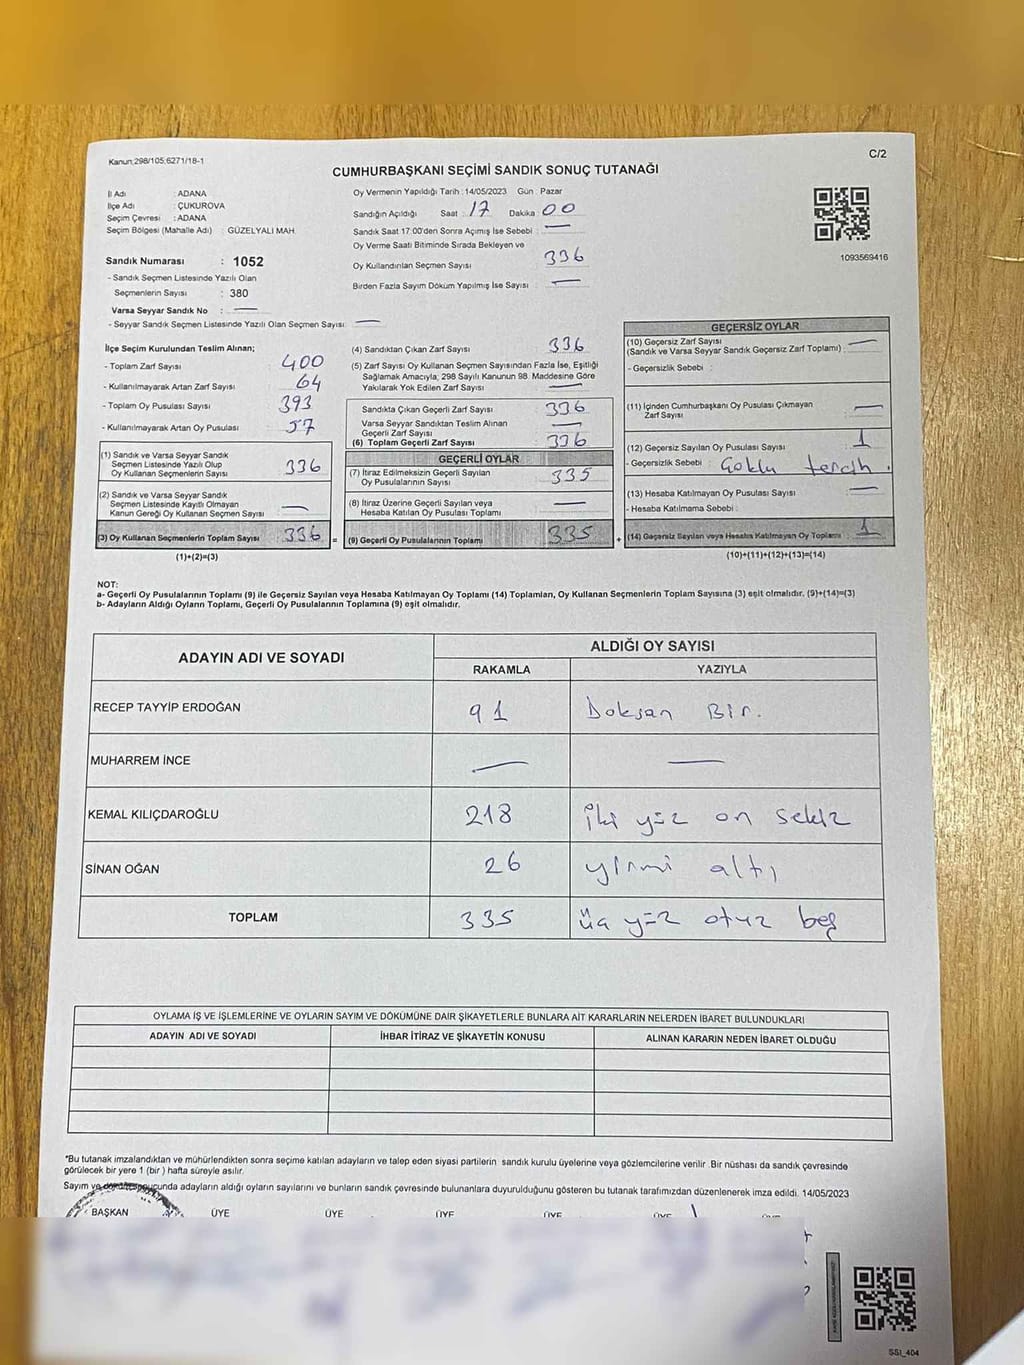 Kanun;298/105;6271/18-1
C/2
CUMHURBAŞKANI SEÇİMİ SANDIK SONUÇ TUTANAĞI
İl Adı : ADANA
İlçe Adı : ÇUKUROVA
Seçim Çevresi : ADANA
Seçim Bölgesi (Mahalle Adı) : GÜZELYALI MAH.
Oy Vermenin Yapıldığı Tarih :14/05/2023 Gün : Pazar
Sandığın Açıldığı Saat : 17 Dakika 00
Sandık Saat 17:00'den Sonra Açımış İse Sebebi : —
Oy Verme Saati Bitiminde Sırada Bekleyen ve
Oy Kullandırılan Seçmen Sayısı 336
Birden Fazla Sayım Döküm Yapılmış İse Sayısı : —
1093569416
Sandık Numarası : 1052
- Sandık Seçmen Listesinde Yazılı Olan
Seçmenlerin Sayısı : 380
Varsa Seyyar Sandık No : —
- Seyyar Sandık Seçmen Listesinde Yazılı Olan Seçmen Sayısı: —
İlçe Seçim Kurulundan Teslim Alınan;
- Toplam Zarf Sayısı : 400
- Kullanılmayarak Artan Zarf Sayısı : 64
- Toplam Oy Pusulası Sayısı : 393
- Kullanılmayarak Artan Oy Pusulası : 57
(1) Sandık ve Varsa Seyyar Sandık
Seçmen Listesinde Yazılı Olup
Oy Kullanan Seçmenlerin Sayısı : 336
(2) Sandık ve Varsa Seyyar Sandık
Seçmen Listesinde Kayıtlı Olmayan
Kanun Gereği Oy Kullanan Seçmen Sayısı : —
(3) Oy Kullanan Seçmenlerin Toplam Sayısı : 336
(1)+(2)=(3)
(4) Sandıktan Çıkan Zarf Sayısı : 336
(5) Zarf Sayısı Oy Kullanan Seçmen Sayısından Fazla İse, Eşitliği
Sağlamak Amacıyla, 298 Sayılı Kanunun 98. Maddesine Göre
Yakılarak Yok Edilen Zarf Sayısı : —
Sandıkta Çıkan Geçerli Zarf Sayısı : 336
Varsa Seyyar Sandıktan Teslim Alınan
Geçerli Zarf Sayısı : —
(6) Toplam Geçerli Zarf Sayısı : 336
GEÇERLİ OYLAR
(7) İtiraz Edilmeksizin Geçerli Sayılan
Oy Pusulalarının Sayısı : 335
(8) İtiraz Üzerine Geçerli Sayılan veya
Hesaba Katılan Oy Pusulası Toplamı : —
= (9) Geçerli Oy Pusulalarının Toplamı : 335
GEÇERSİZ OYLAR
(10) Geçersiz Zarf Sayısı
(Sandık ve Varsa Seyyar Sandık Geçersiz Zarf Toplamı) : —
- Geçersizlik Sebebi :
(11) İçinden Cumhurbaşkanı Oy Pusulası Çıkmayan
Zarf Sayısı : —
(12) Geçersiz Sayılan Oy Pusulası Sayısı : 1
- Geçersizlik Sebebi : Çoklu tercih.
(13) Hesaba Katılmayan Oy Pusulası Sayısı : —
- Hesaba Katılmama Sebebi :
+ (14) Geçersiz Sayılan veya Hesaba Katılmayan Oy Toplamı : 1
(10)+(11)+(12)+(13)=(14)
NOT:
a- Geçerli Oy Pusulalarının Toplamı (9) ile Geçersiz Sayılan veya Hesaba Katılmayan Oy Toplamı (14) Toplamları, Oy Kullanan Seçmenlerin Toplam Sayısına (3) eşit olmalıdır. (9)+(14)=(3)
b- Adayların Aldığı Oyların Toplamı, Geçerli Oy Pusulalarının Toplamına (9) eşit olmalıdır.
ADAYIN ADI VE SOYADI
ALDIĞI OY SAYISI
RAKAMLA YAZIYLA
RECEP TAYYİP ERDOĞAN 91 Doksan Bir.
MUHARREM İNCE — —
KEMAL KILIÇDAROĞLU 218 iki yüz on sekiz
SİNAN OĞAN 26 yirmi altı
TOPLAM 335 üç yüz otuz beş
OYLAMA İŞ VE İŞLEMLERİNE VE OYLARIN SAYIM VE DÖKÜMÜNE DAİR ŞİKAYETLERLE BUNLARA AİT KARARLARIN NELERDEN İBARET BULUNDUKLARI
ADAYIN ADI VE SOYADI İHBAR İTİRAZ VE ŞİKAYETİN KONUSU ALINAN KARARIN NEDEN İBARET OLDUĞU
*Bu tutanak imzalandıktan ve mühürlendikten sonra seçime katılan adayların ve talep eden siyasi partilerin sandık kurulu üyelerine veya gözlemcilerine verilir. Bir nüshası da sandık çevresinde
görülecek bir yere 1 (bir ) hafta süreyle asılır.
Sayım ve adayların aldığı oyların sayılarını ve bunların sandık çevresinde bulunanlara duyurulduğunu gösteren bu tutanak tarafımızdan düzenlenerek imza edildi. 14/05/2023
BAŞKAN ÜYE ÜYE ÜYE ÜYE ÜYE
SSI_404